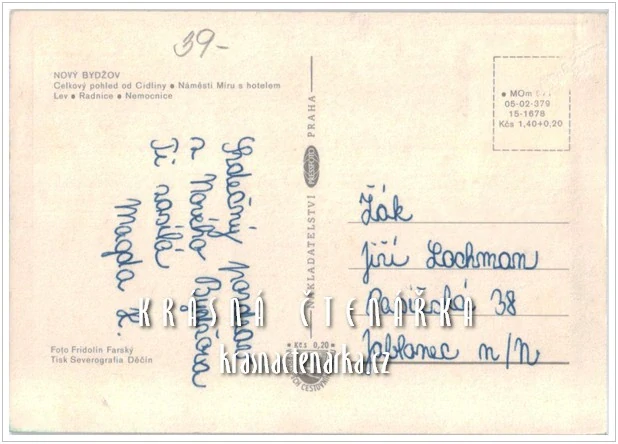 39-
NOVÝ BYDŽOV
Celkový pohled od Cidliny • Náměstí Míru s hotelem
Lev • Radnice • Nemocnice
• MOm
05-02-379
15-1678
Kčs 1,40+0,20
NAKLADATELSTVÍ PRESSFOTO PRAHA
Srdečný pozdrav
z Nového Bydžova
Ti zasílá
Magda K.
Žák
Jiří Lochman
38
Jablonec n/N
KRÁSNÁ ČTENÁŘKA
krasnactenarka.cz
* Kčs 0,20 *
Foto Fridolín Farský
Tisk Severografia Děčín